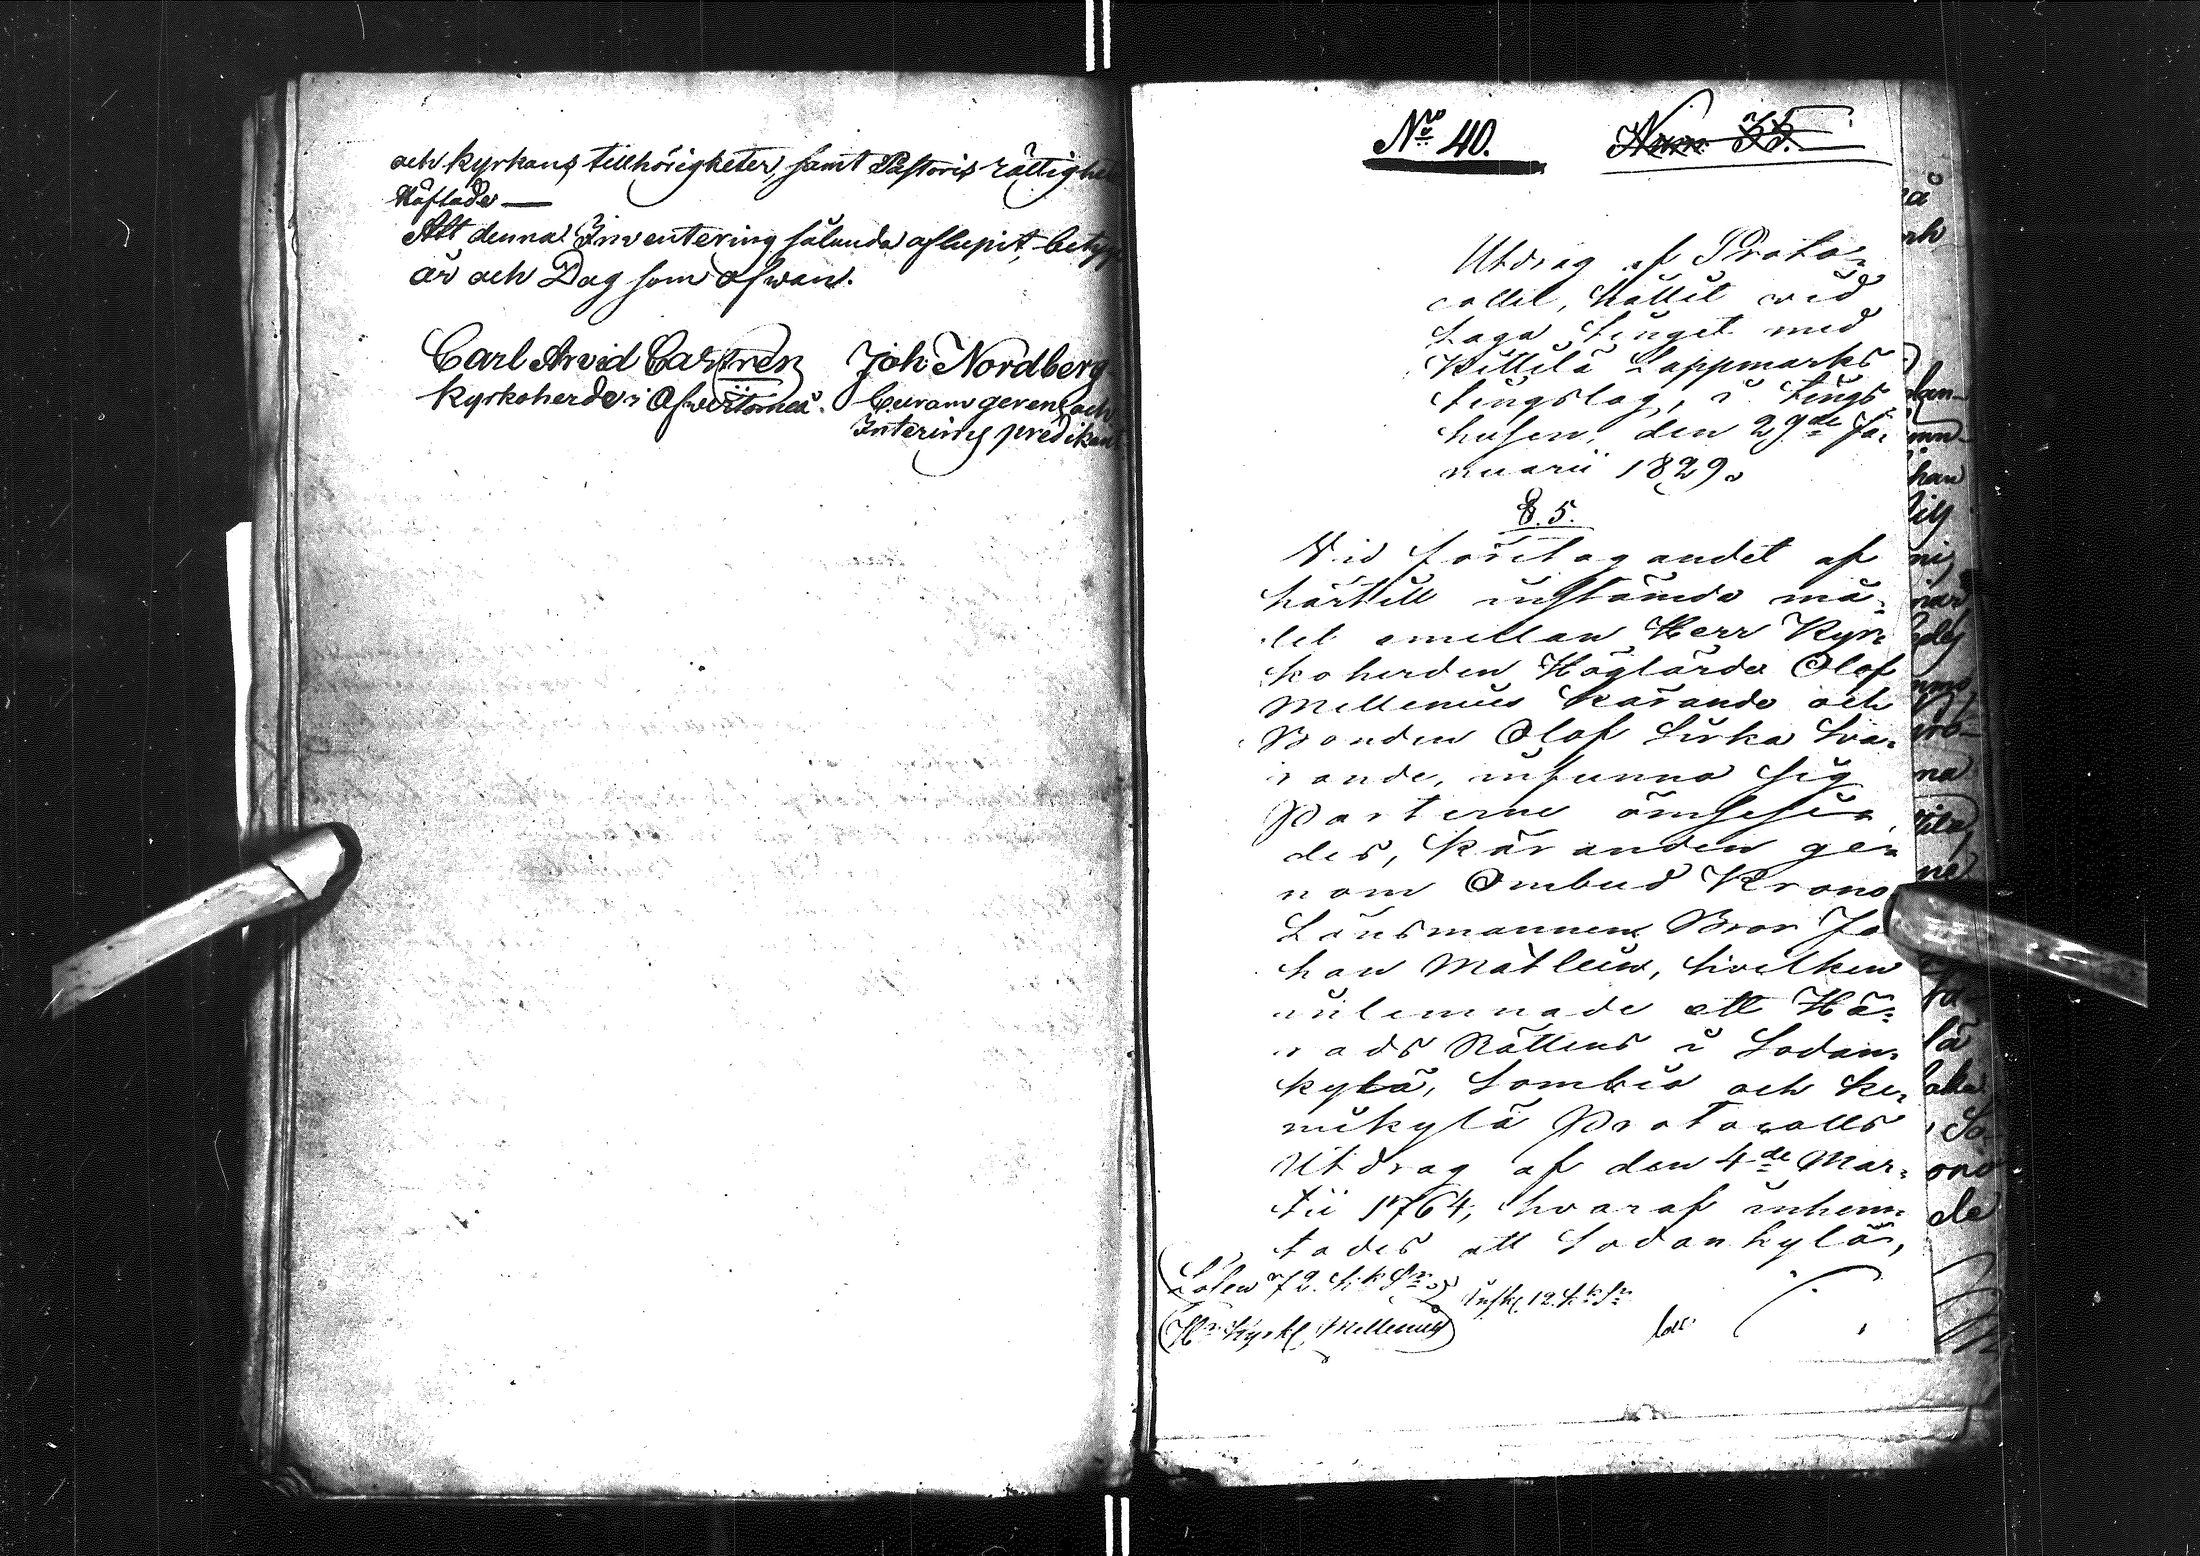 och kyrkans tillhörigheter, samt Pastoris rättighe
Häftade —
Att denna Inventering sålunda aflupit, betyg
år och Dag som ofwan.
Carl Arvid Castrén
Kyrkoherde i Öfwertorneå.
Joh Nordberg
Curam gerens och
Interims predikan
No 40.
Num
Utdrag af Proto-
collet, hållit wid
Laga Tinget med
Kittilä Lappmarks
tingslag, i Tings
husen, den 29de Ja-
nuarii 1829.
§. 5.
Vid företagandet af
härtill instämda må-
let emellan Herr Kyr-
koherden Höglärde Olof
Mellenius Kärande och
Bonden Olof Sirka Sva-
rande, infunno sig
Parterne ömsesi-
des, Käranden ge-
nom Ombud Krono
Länsmannen Bror Jo
han Matlein, hvilken
inlemnade ett Hä-
rads Rättens i Sodan-
kylä, Sombio och Ke-
mikylä Protocolls
Utdrag af den 4de Mar-
tii 1764, hvaraf inhem-
tades att Sodankylä,
Lösen 72. k. Sr.
Insk. 12. k. Sr
Hr. Kyrkh. Mellenius
han
na
ne
lä
So-
ono
de